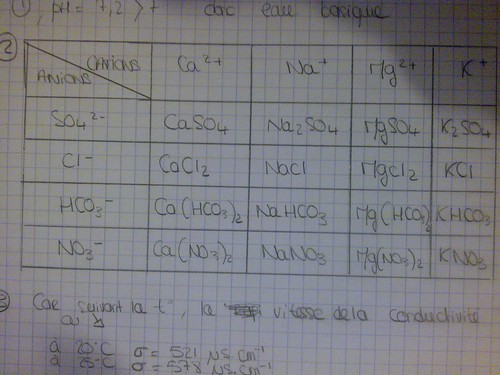 1) , pH = 7,2 > 7 donc eau basique
2)
CATIONS Ca²⁺ Na⁺ Mg²⁺ K⁺
ANIONS
SO₄²⁻ CaSO₄ Na₂SO₄ MgSO₄ K₂SO₄
Cl⁻ CaCl₂ NaCl MgCl₂ KCl
HCO₃⁻ Ca(HCO₃)₂ NaHCO₃ Mg(HCO₃)₂ KHCO₃
NO₃⁻ Ca(NO₃)₂ NaNO₃ Mg(NO₃)₂ KNO₃
3) Car suivant la t°, la vitesse de la conductivité
à 20°C σ = 521 µS.cm⁻¹
à 25°C σ = 578 µS.cm⁻¹